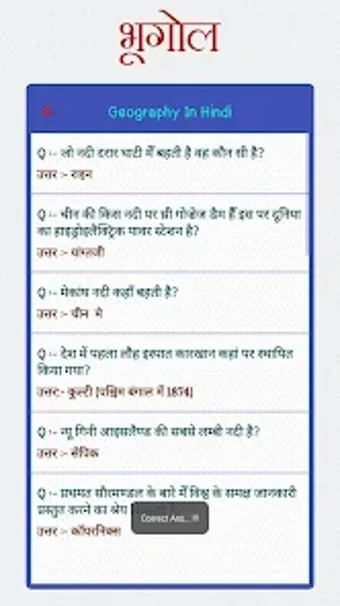 भूगोल
Geography In Hindi
Q :- जो नदी दरार घाटी में बहती है वह कौन सी है?
उत्तर :- राइन
Q :- चीन की किस नदी पर थ्री गोर्जेज डैम हैं इस पर दुनिया
का हाइड्रोइलैक्ट्रिक पावर स्टेशन है?
उत्तर :- यांग्तजी
Q :- मेकांग नदी कहाँ बहती है?
उत्तर :- चीन मे
Q :- देश में पहला लौह इस्पात कारखान कहां पर स्थापित
किया गया?
उत्तर:- कुल्टी (पश्चिम बंगाल में 1874)
Q :- न्यू गिनी आइसलैण्ड की सबसे लम्बी नदी है?
उत्तर :- सेपिक
Q :- प्रथमत सौरमण्डल के बारे में विश्व के समक्ष जानकारी
प्रस्तुत करने का श्रेय
Correct Ans...!!!
उत्तर :- कॉपरनिक्स